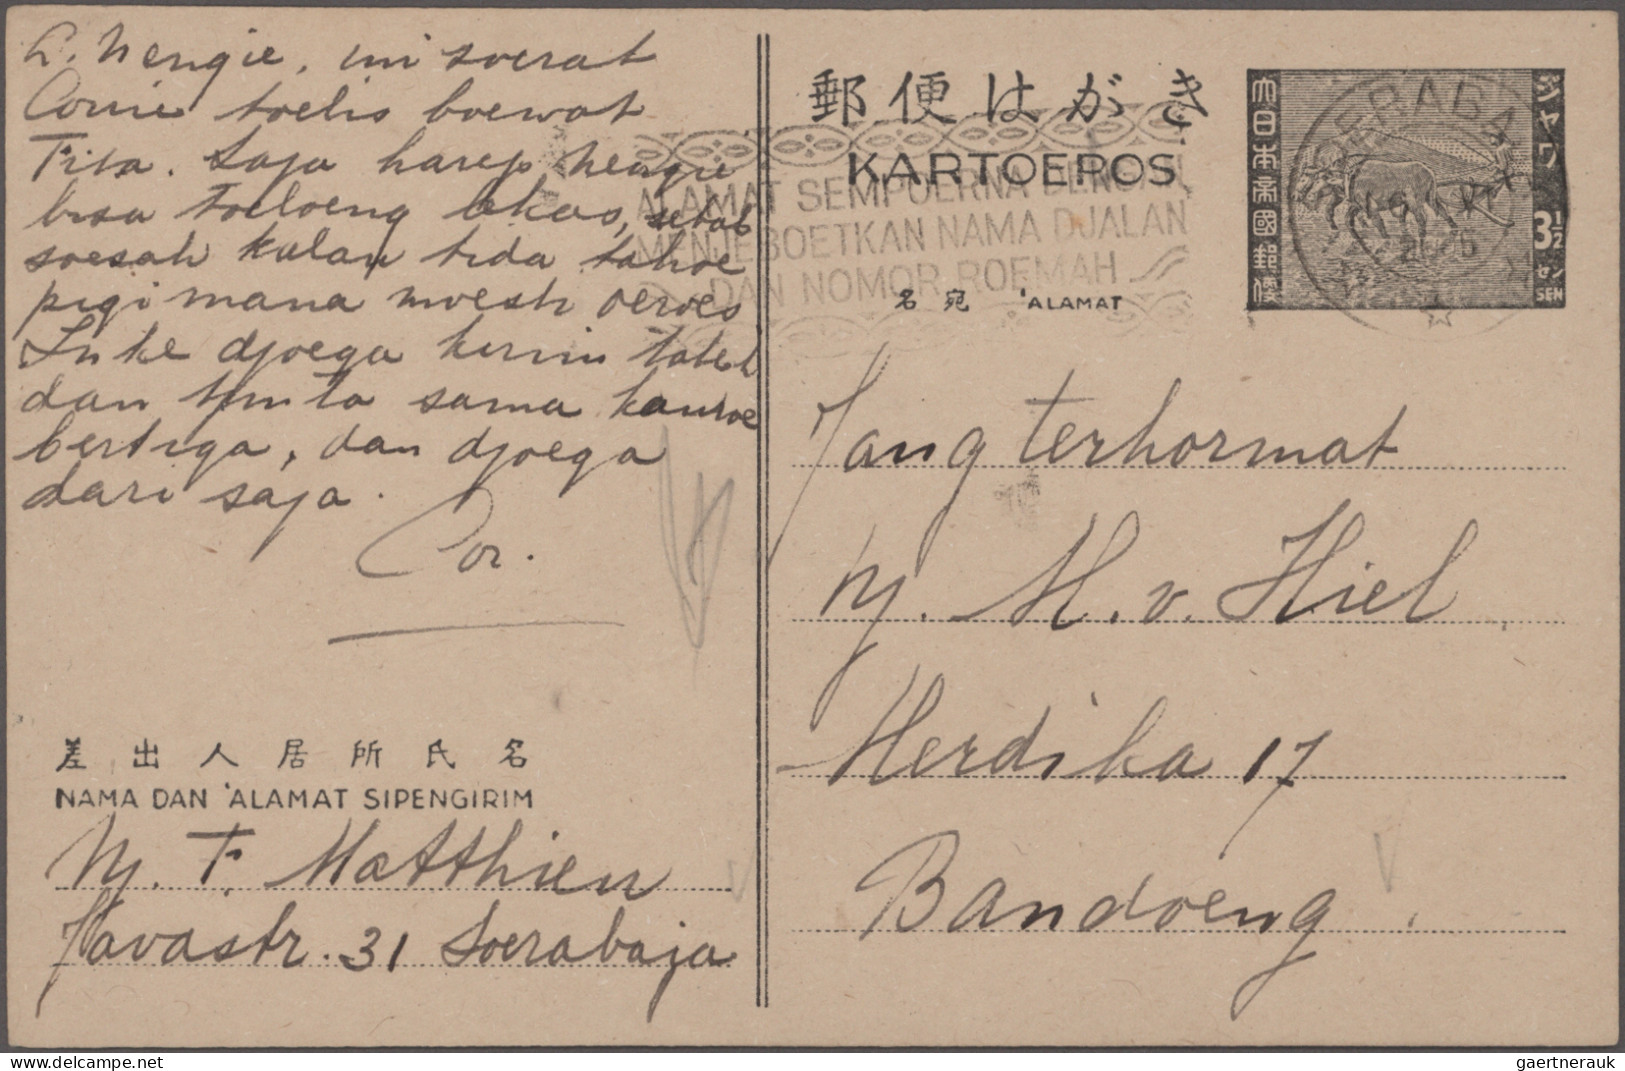 L. Nengie, ini soerat
Corrie toelis boewat
Tita. Saja harep Nengie
bisa toeloeng lekas, sebab
soesah kalau tida tahoe
pigi mana moesti oeroes
Inke djoega kirim tabeh
dan tjinta sama kamoe
bertiga, dan djoega
dari saja.
Cor.
差出人居所氏名
NAMA DAN 'ALAMAT SIPENGIRIM
Nj. T. Matthieu
Javastr. 31 Soerabaja
郵便はがき
KARTOEPOS
ALAMAT SEMPOERNA DENGAN
MENJEBOETKAN NAMA DJALAN
DAN NOMOR ROEMAH
名宛 'ALAMAT
大日本帝國郵便
ジャワ
3½
セン
SEN
SOERABAJA
Jang terhormat
Nj. M. v. Hiel
Merdika 17
Bandoeng.
delcampe.net
gaertnerauk